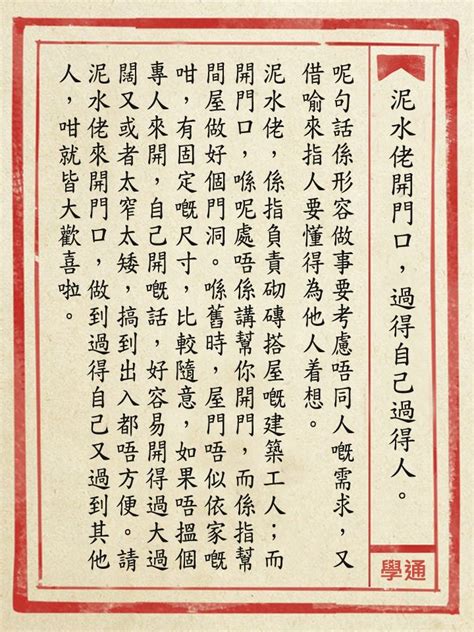 泥水佬開門口，過得自己過得人。
呢句話係形容做事要考慮唔同人嘅需求，又
借喻來指人要懂得為他人着想。
泥水佬，係指負責砌磚搭屋嘅建築工人；而
開門口，喺呢處唔係講幫你開門，而係指幫
間屋做好個門洞。喺舊時，屋門唔似依家嘅
咁，有固定嘅尺寸，比較隨意，如果唔搵個
專人來開，自己開嘅話，好容易開得過大過
闊又或者太窄太矮，搞到出入都唔方便。請
泥水佬來開門口，做到過得自己又過到其他
人，咁就皆大歡喜啦。
學通